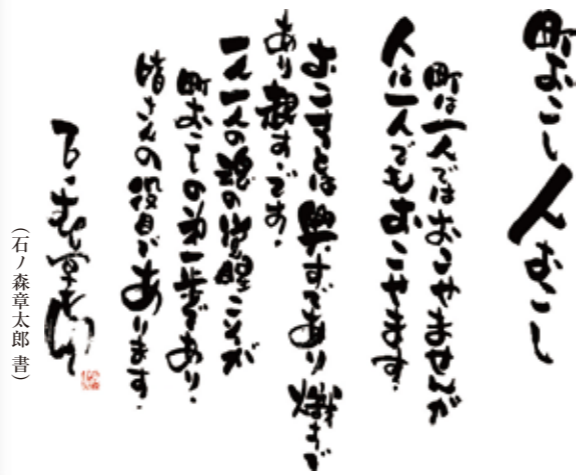 町おこし人おこし
町は一人ではおこせませんが
人は一人でもおこせます。
おこすとは興すであり 熾すで
あり す・であ・
一人一人の魂の覚醒こそが
町おこしの第一歩であり・
皆さんの役目であります・
(石ノ森章太郎 書)